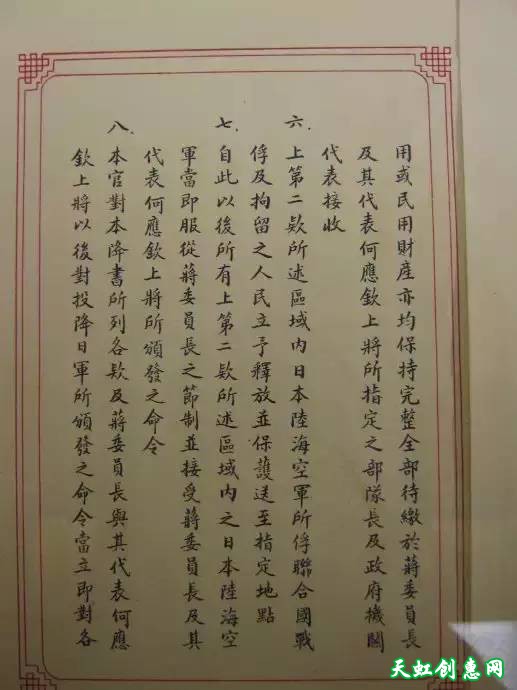 用或民用財產亦均保持完整全部待繳於蔣委員長
及其代表何應欽上將所指定之部隊長及政府機關
代表接收
六.上第二款所述區域內日本陸海空軍所俘聯合國戰
俘及拘留之人民立予釋放並保護送至指定地點
七.自此以後所有上第二款所述區域內之日本陸海空
軍當即服從蔣委員長之節制並接受蔣委員長及其
代表何應欽上將所頒發之命令
八.本官對本降書所列各款及蔣委員長與其代表何應
欽上將以後對投降日軍所頒發之命令當立即對各
天虹创惠网